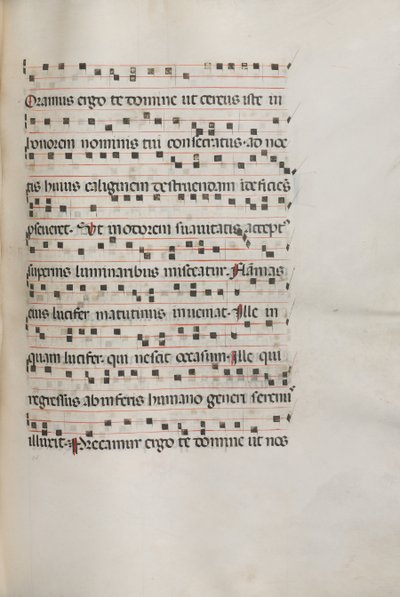 Oramus ergo te domine ut cereus iste in
honorem nominis tui consecratus. ad noc
tis huius caliginem destruendam indeficiens
perseveret. Et in odorem suavitatis accept
supernis luminaribus misceatur. Flamas
eius lucifer matutinus inveniat. Ille in
quam lucifer. qui nescit occasum. Ille qui
regressus ab inferis humano generi serenus
illuxit. Precamur ergo te domine ut nos